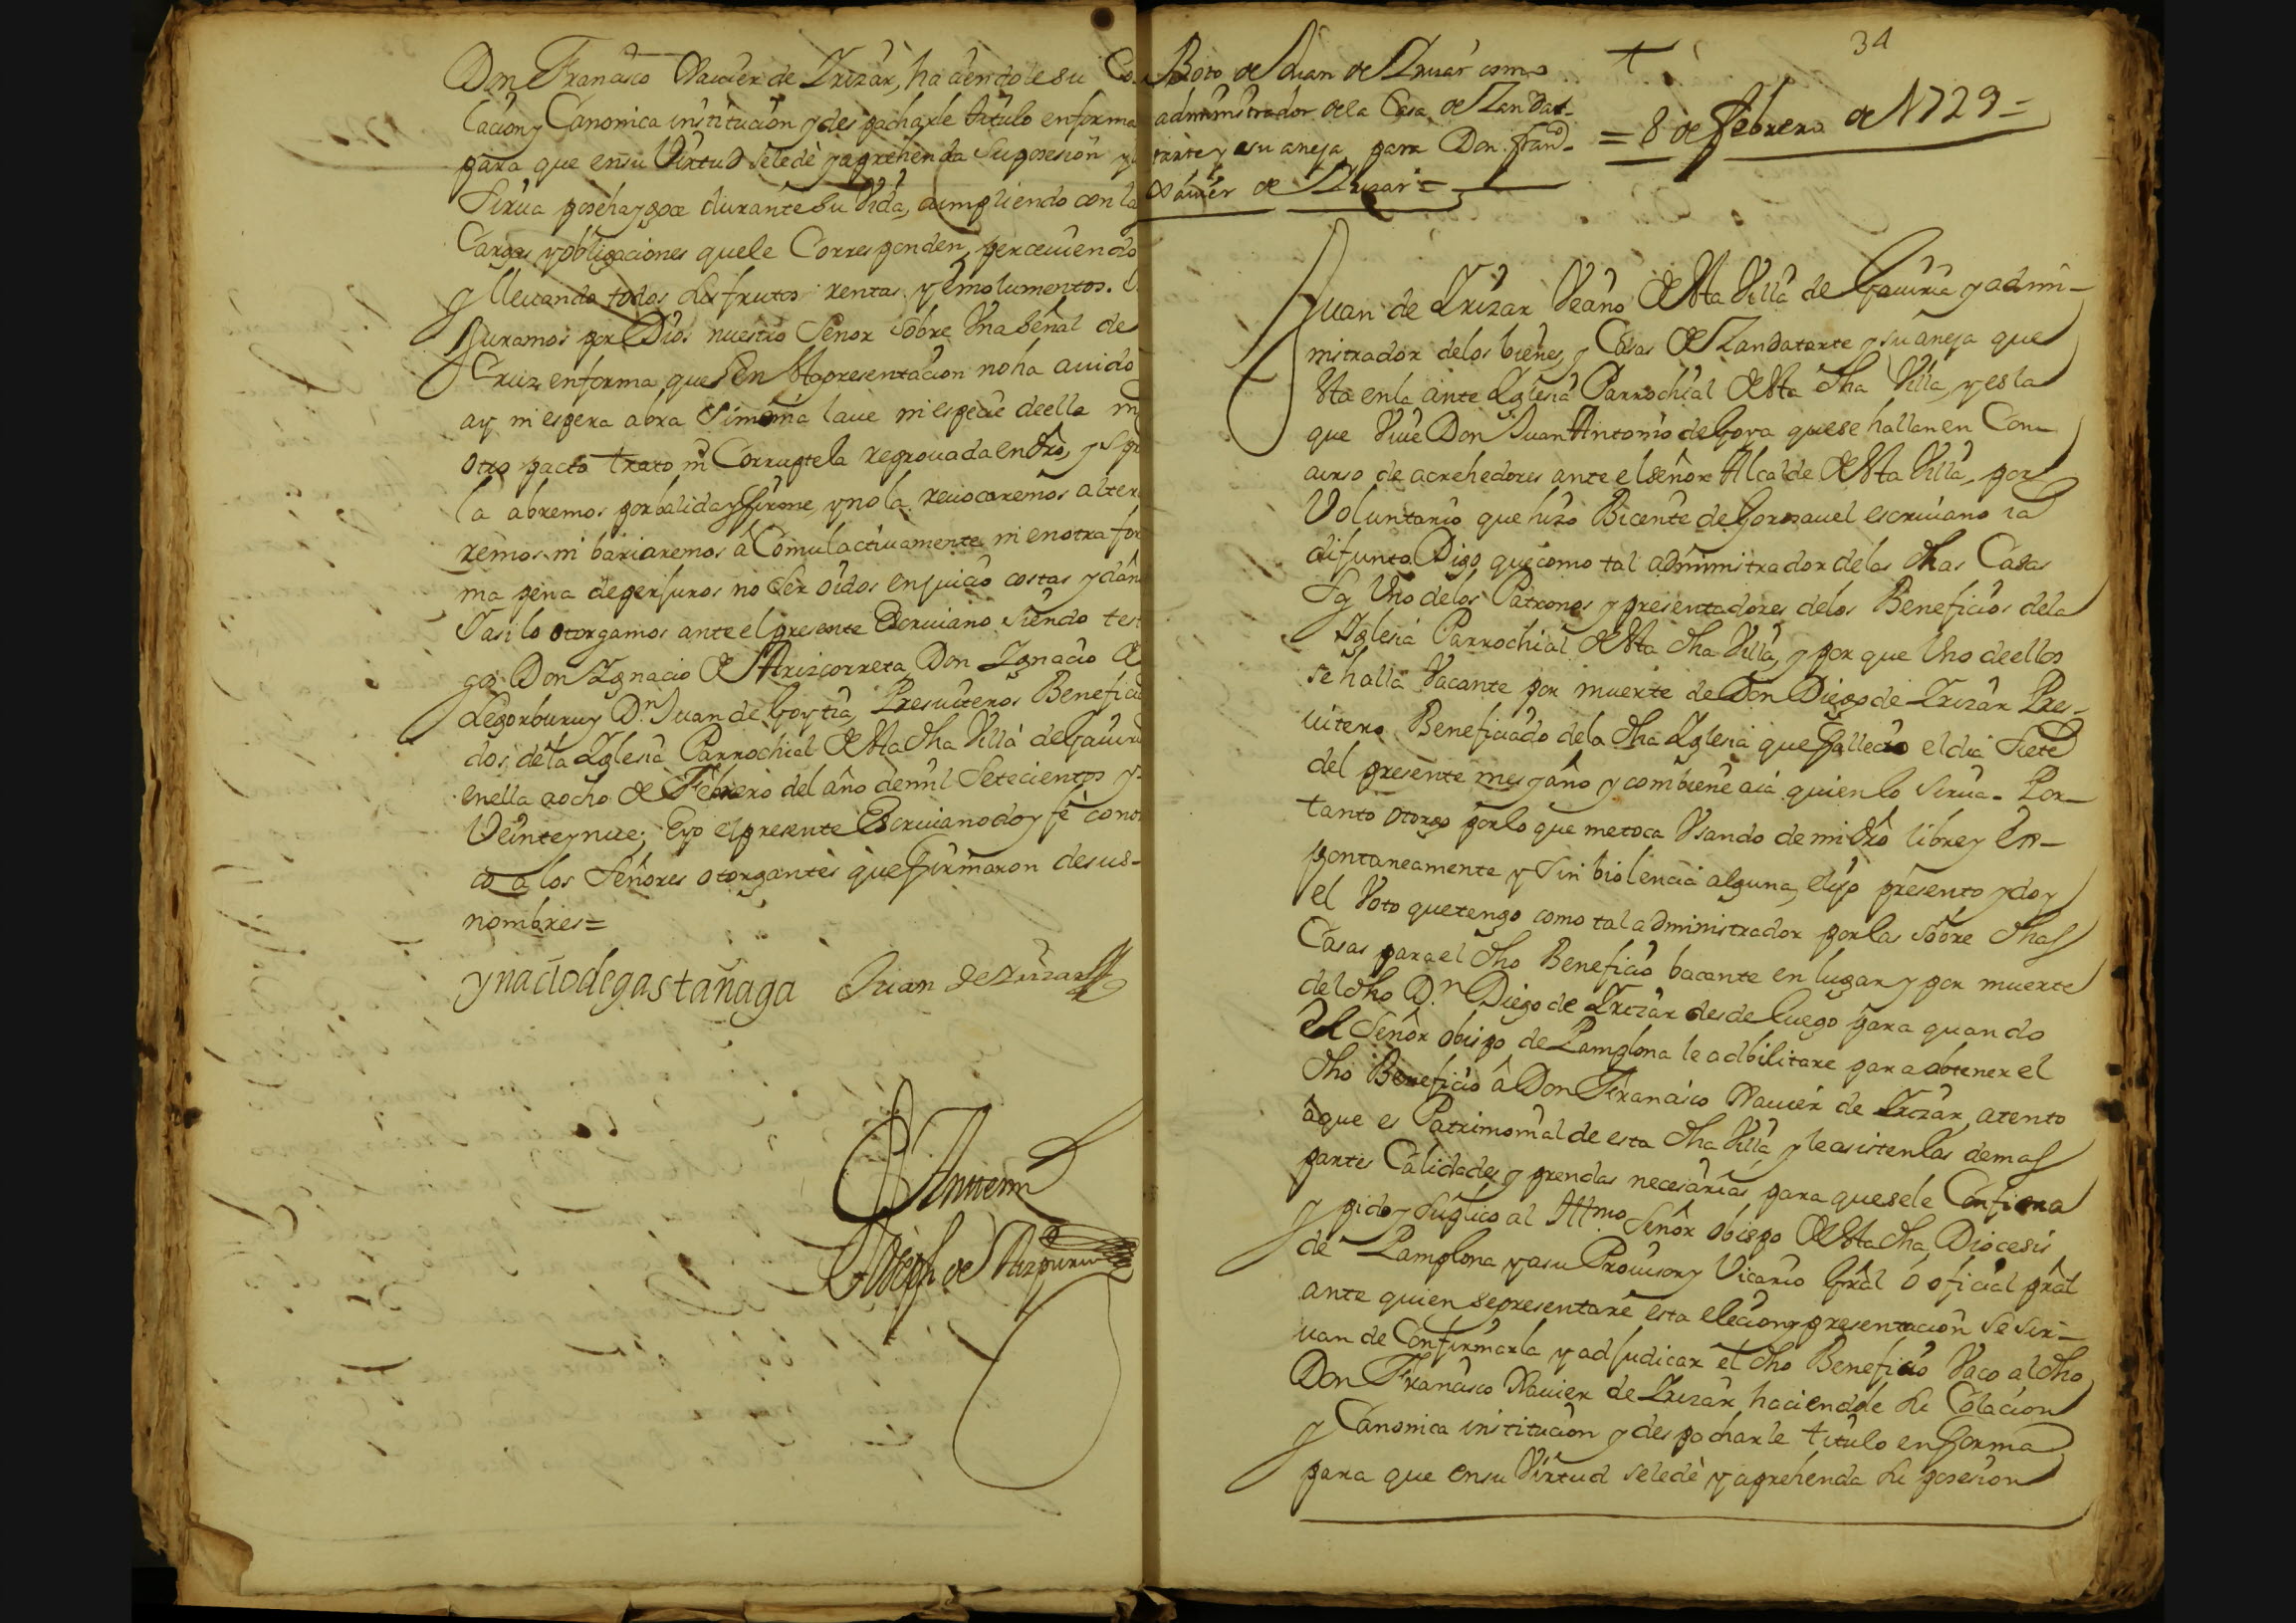 Don Francisco Xauier de Yrizar, haciendole su Co
lacion y Canonica institucion y despacharle titulo en forma
para que en su Virtud sele dè y aprehenda su posesion y l
sirua posea y goce durante su Vida, cumpliendo con la
Cargas y obligaciones quele Corresponden, perceuiendo
y lleuando todos los frutos rentas y emolumentos.
Juramos por Dios nuestro Señor sobre Vna señal de
Cruz enforma que en esta presentacion no ha auido
ay ni espera abra Simonia laue ni especie de ella ni
otro pacto trato ni Corruptela reprouada en dro, y S
la abremos por balida y firme, y no la reuocaremos alter
remos ni bariaremos â Comulactiuamente ni en otra for
ma pena de perjuros no ser oidos en juicio costas y dan
Y asi lo otorgamos ante el presente Escriuano siendo tes
gos Don Ygnacio de Arizcorreta Don Ygnacio de
Legorburu y Dn. Juan de Goytia Presuiteros Beneficia
dos, de la Yglesia Parrochial de esta dha Villa de Gauiria
en ella a ocho de Febrero del año de mil Setecientos y
Veinte y nueve; Eyo el presente Escriuano doy fé cono
co â los Señores otorgantes que firmaron de sus
nombres=
ynacio de gastañaga Juan de Yrizar
Ante mi
Joseph de Aizpuru
34
Boto de Juan de Yrizar como
administrador de la Casa de Zandat-
tarte y su aneja para Don Franco.
Xauier de Yrizar =
= 8 de febrero de 1729 =
Juan de Yrizar Vecino de esta Villa de Gauiria y admi-
nistrador de los bienes y Casas de Zandatarte y su aneja que
esta en la ante Yglesia Parrochial de esta dha Villa, y es la
que Viue Don Juan Antonio de Goya que se hallan en Con-
curso de acrehedores ante el señor Alcalde de esta Villa, por
Voluntario que hizo Bicente de Gorosauel escriuano ia
difunto Digo que como tal administrador de las dhas Casas
Soy Vno de los Patronos y presentadores de los Beneficios de la
Yglesia Parrochial de esta dha Villa, y por que Vno de ellos
se halla Vacante por muerte de Don Diego de Yrizar Pres-
uitero Beneficiado de la dha Yglesia que fallecio el dia siete
del presente mes y año y combiene aia quien lo Sirua. Por-
tanto otorgo por lo que me toca Vsando de mi dro libre y Es-
pontaneamente y sin biolencia alguna, elijo presento y doy
el Voto que tengo como tal administrador por las sobre dhas
Casas para el dho Beneficio bacante en lugar y por muerte
del dho Dn. Diego de Yrizar desde luego para quando
El Señor obispo de Pamplona le adbilitare para obtener el
dho Beneficio â Don Francisco Xauier de Yrizar, atento
â que es Patrimonial de esta dha Villa y le asisten las demas
partes Calidades y prendas necesarias para que sele Confiera
y pido y suplico al Illmo. Señor obispo de esta dha Diocesis
de Pamplona y a su Prouisor y Vicario Gral ò oficial pral
ante quien se presentare esta elecion y presentacion se sir-
uan de Confirmarla y adjudicar el dho Beneficio Vaco al dho
Don Francisco Xauier de Yrizar haciendole su Colacion
y Canonica institucion y despacharle titulo en forma
para que en su Virtud sele dè y aprehenda su posesion